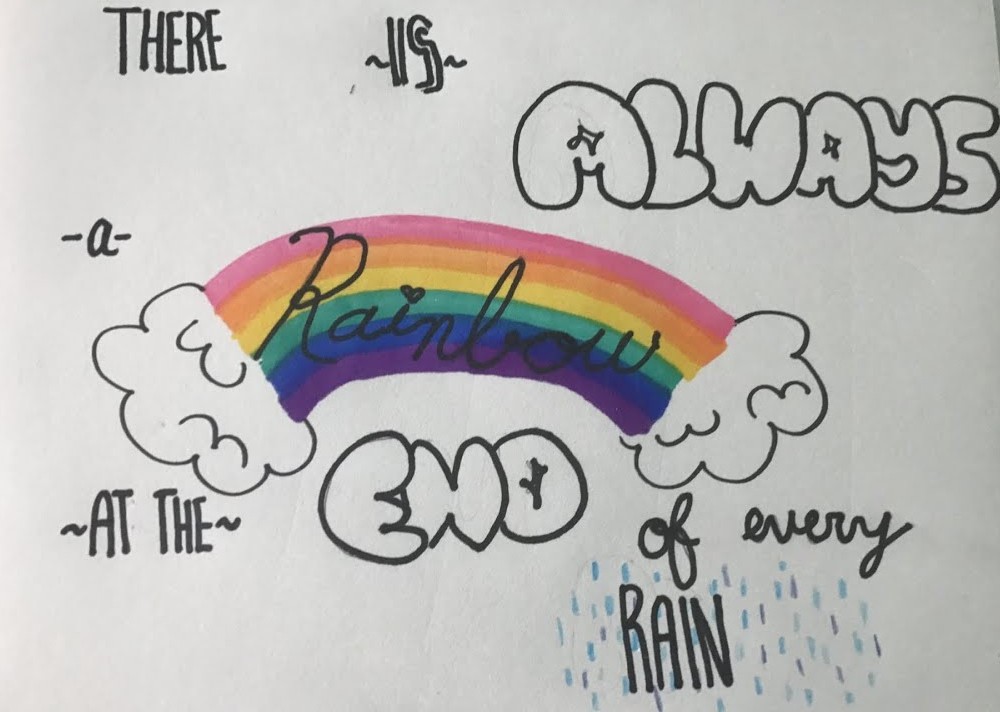 THERE ~IS~
ALWAYS
-a-
Rainbow
~AT THE~ END of every
RAIN